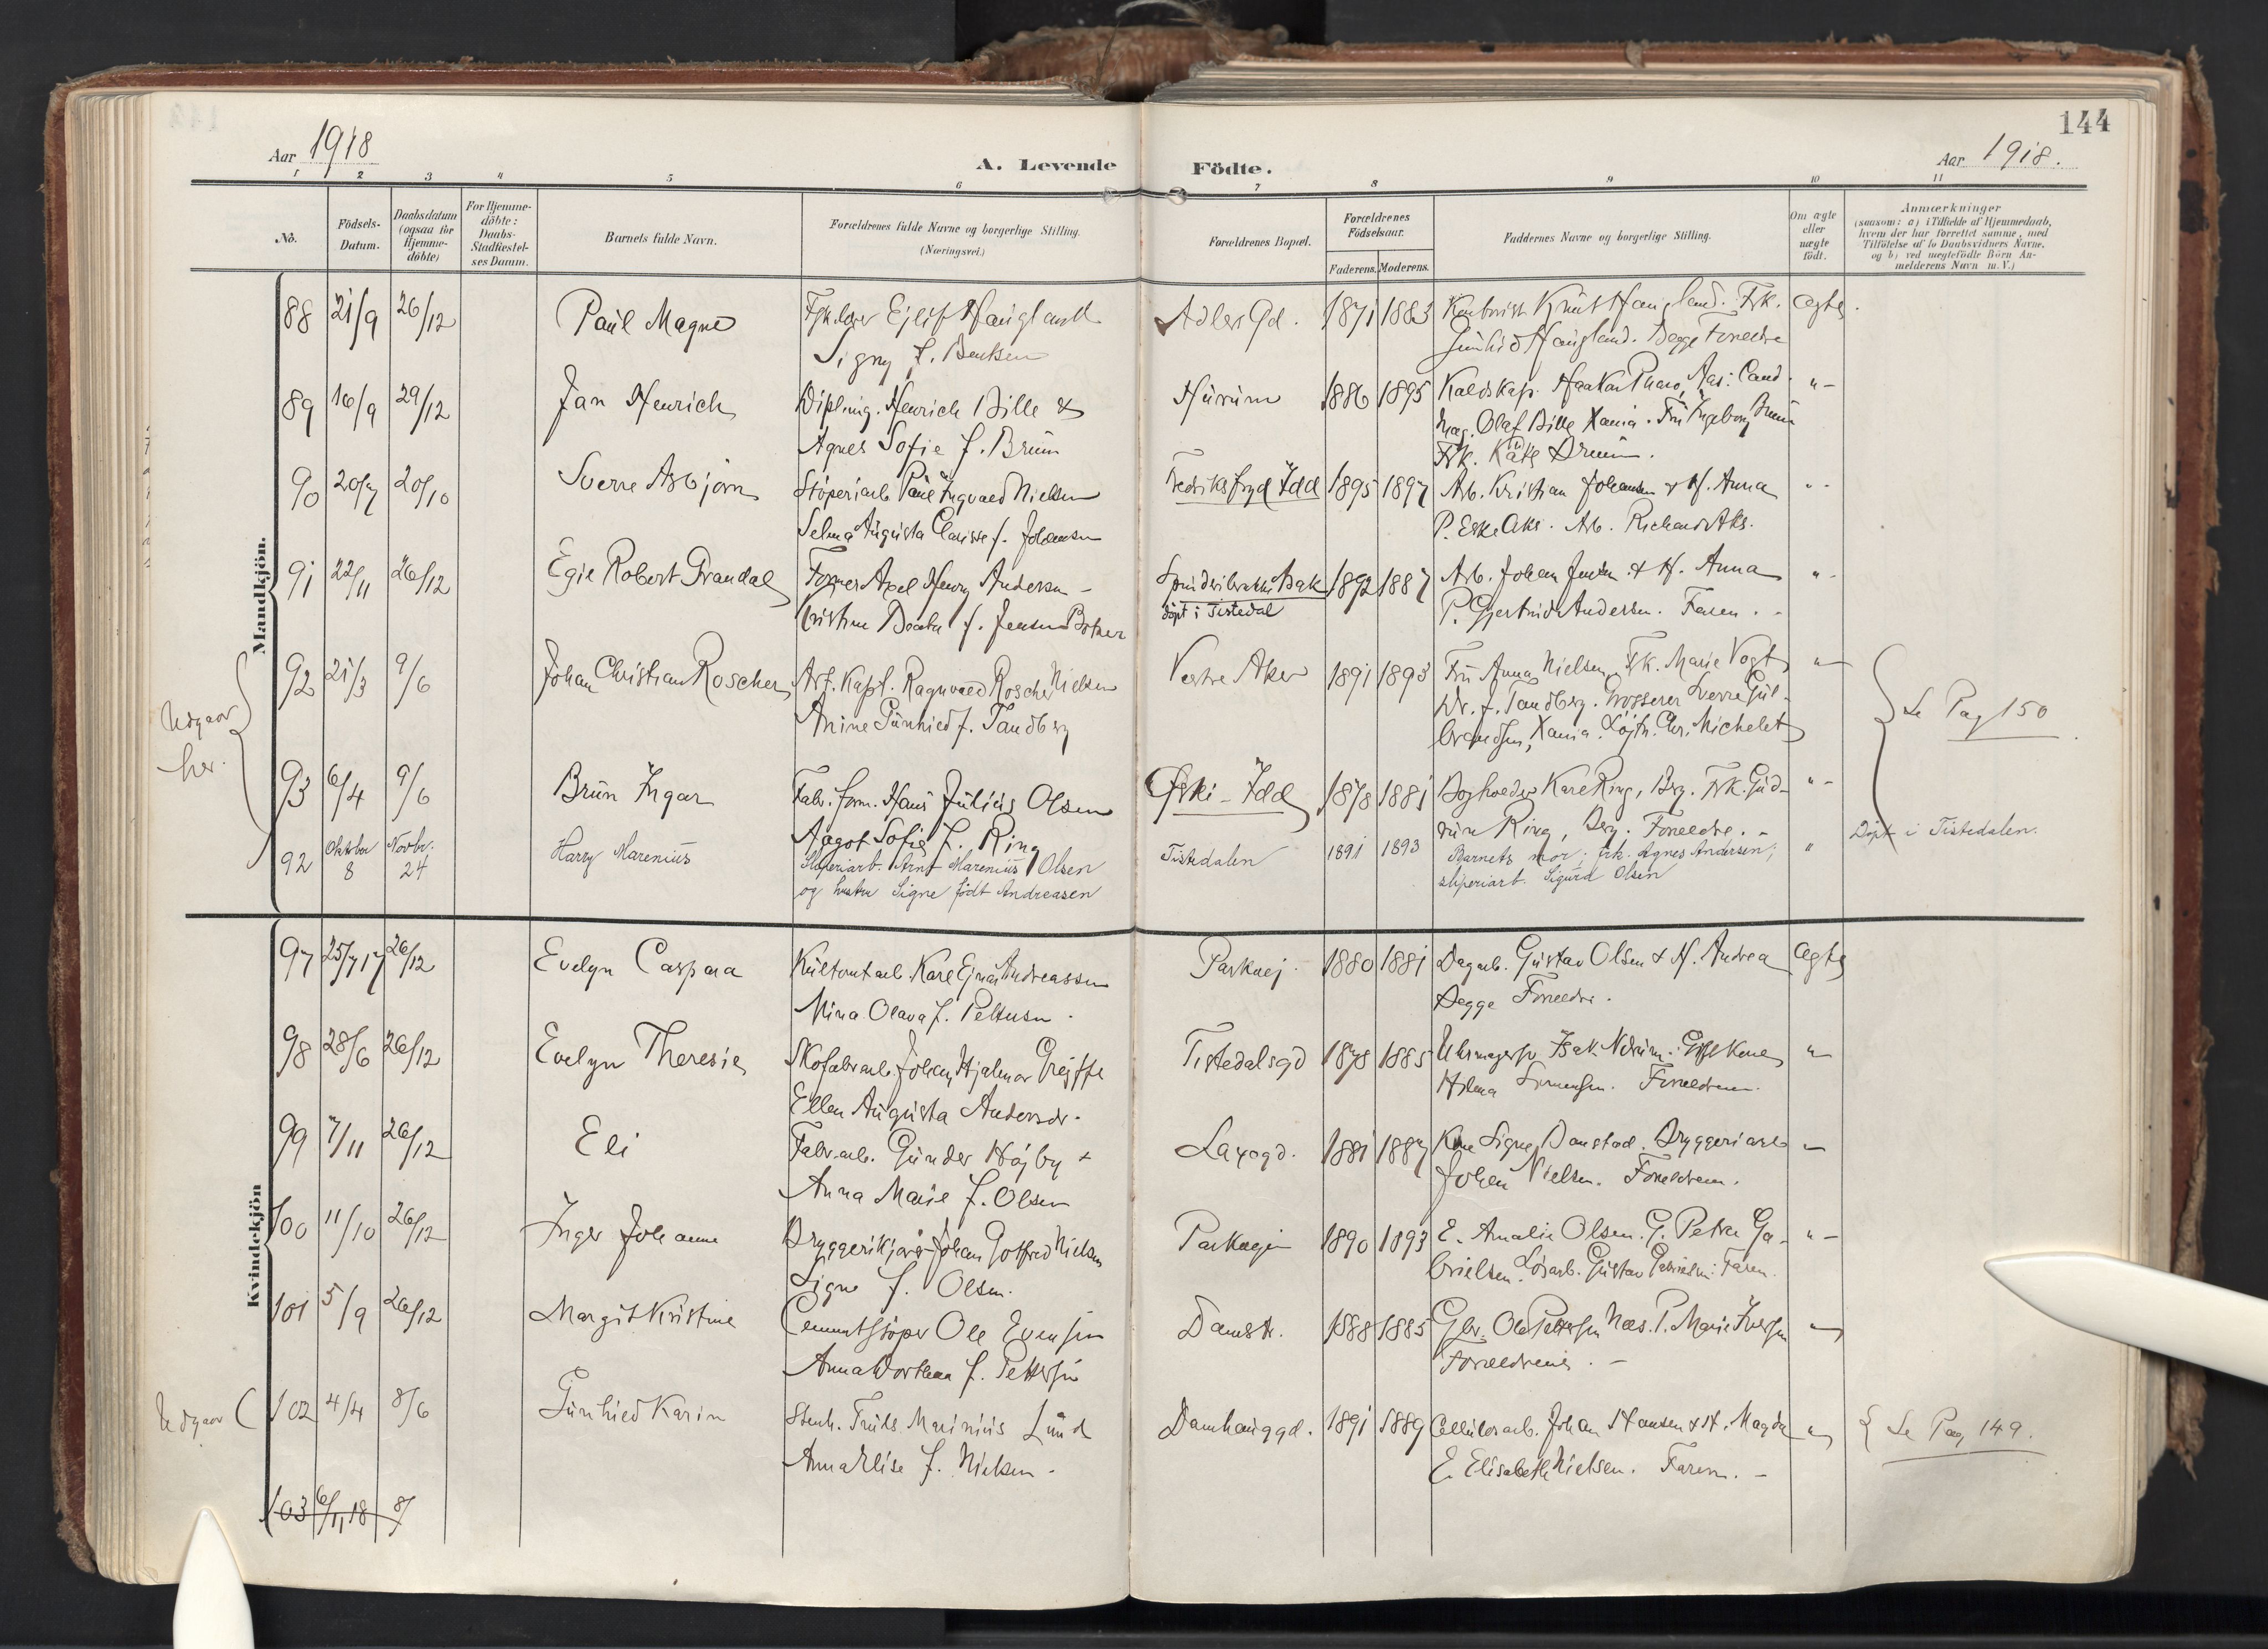 144
Aar 1918
A. Levende Födte.
Aar 1918.
1 2 3 4 5 6 7 8 9 10 11
No.
Födsels-Datum.
Daabsdatum (ogsaa for Hjemme-döbte)
For Hjemme-döbte: Daabs-Stadfæstel-ses Datum.
Barnets fulde Navn.
Forældrenes fulde Navne og borgerlige Stilling. (Næringsvei.)
Forældrenes Bopæl.
Forældrenes Födselsaar.
Faderens. Moderens.
Faddernes Navne og borgerlige Stilling.
Om ægte eller uægte födt.
Anmærkninger
(saasom: a) i Tilfælde af Hjemmedaab, hvem der har forrettet samme, med Tilföielse af to Daabsvidners Navne, og b) ved uægtefödte Börn Anmelderens Navn m. V.)
Mandkjön.
88 21/9 26/12 Paul Magne Ejlif Haugland Adlers Gd. 1871 1883 Knut Haugland. Frk. Ægte
Signy f. Bentsen Gunhild Haugland. Begge Forældre
89 16/9 29/12 Jan Henrich Dipl.ing. Henrich Bille & Hurum 1886 1895 Haakon Aas: Cand. "-
Agnes Sofie f. Bruun mag. Olaf Bille Xania. Fru Ingeborg Bruun
Frk. Käte Bruun.
90 20/7 20/10 Sverre Asbjörn Støperiarb. Paul Ingvald Nielsen Fredriksfryd Idd 1895 1897 Arb. Kristian Johansen & H. Anna "-
Selma Augusta Clarisse f. Johansen P. Arb. Richard Aks.
91 22/11 26/12 Egil Robert Grandal Former Axel Henry Andersen - Bak 1892 1887 Arb. Johan Jensen & H. Anna "-
Kristine Beata f. Jensen døpt i Tistedal P. Gjertrud Andersen. Faren. -
Udgaar her.
92 21/3 9/6 Johan Christian Roscher Art. Kapt. Ragnvald Roscher Nielsen Vestre Aker 1891 1893 Fru Anna Nielsen, Frk. Marie Vogt "
Anine Gunhild f. Tandberg Dr. J. Tandberg. Grosserer Sverre Gulbrandsen, Xania. Løjtn. Chr. Michelet
Se Pag 150
93 6/4 9/6 Brun Ingar Fabr. form. Hans Julius Olsen Ørki - Idd 1878 1881 Bogholder Kare Ring, Brg. Frk. Gud- "-
Aagot Sofie f. Ring run Ring, Brg. Forældre. -
92 Oktober 8 Novbr. 24 Harry Marenius Sliperiarb. Arnt Marenius Olsen Tistedalen 1891 1893 Barnets mor; frk. Agnes Andersen; " Døpt i Tistedalen.
og hustru Signe født Andreasen sliperiarb. Sigurd Olsen
Kvindekjön
97 25/7 17 26/12 Evelyn Caspara Kare Ejnar Andreassen Parkvej. 1880 1881 Dagarb. Gustav Olsen & H. Andrea Ægte
Mina Olava f. Pettersen. Begge Forældre.
98 28/6 26/12 Evelyn Theresie Skofabr.arb. Johan Hjalmar Grejffe Tistedalsgd 1878 1885 Uhrmagerfr Isak Nerum. Kone "
Ellen Augusta Andersdr. Hilma Forældrene.
99 7/11 26/12 Eli Fabr.arb. Gunder Højby & Laxegd. 1881 1887 Kone Signe Damstad. Bryggeriarb "
Anna Marie f. Olsen Johan Nielsen. Forældrene.
100 11/10 26/12 Inger Johanne Bryggerikjører Johan Gotfred Nielsen Parkvejen 1890 1893 E. Amalie Olsen. P. Petra Ga- "-
Signe f. Olsen. brielsen. Løsarb. Gustav Gabrielsen. Faren.
101 5/9 26/12 Margit Kristine Cementstøper Ole Evensen Damstr. 1888 1885 Gbr. Ole Pettersen Næs. P. Marie Iversen "
Anna Dorthea f. Pettersen Forældrene. -
Udgaar
102 4/4 8/6 Gunhild Karin Stenh. Truls Marinius Lund Damhauggd. 1891 1889 Cellulosarb. Johan Hansen & H. Magda " Se Pag 149.
Anna Elise f. Nielsen. E. Elisabeth Nielsen. Faren. -
103 6/11 18 8/